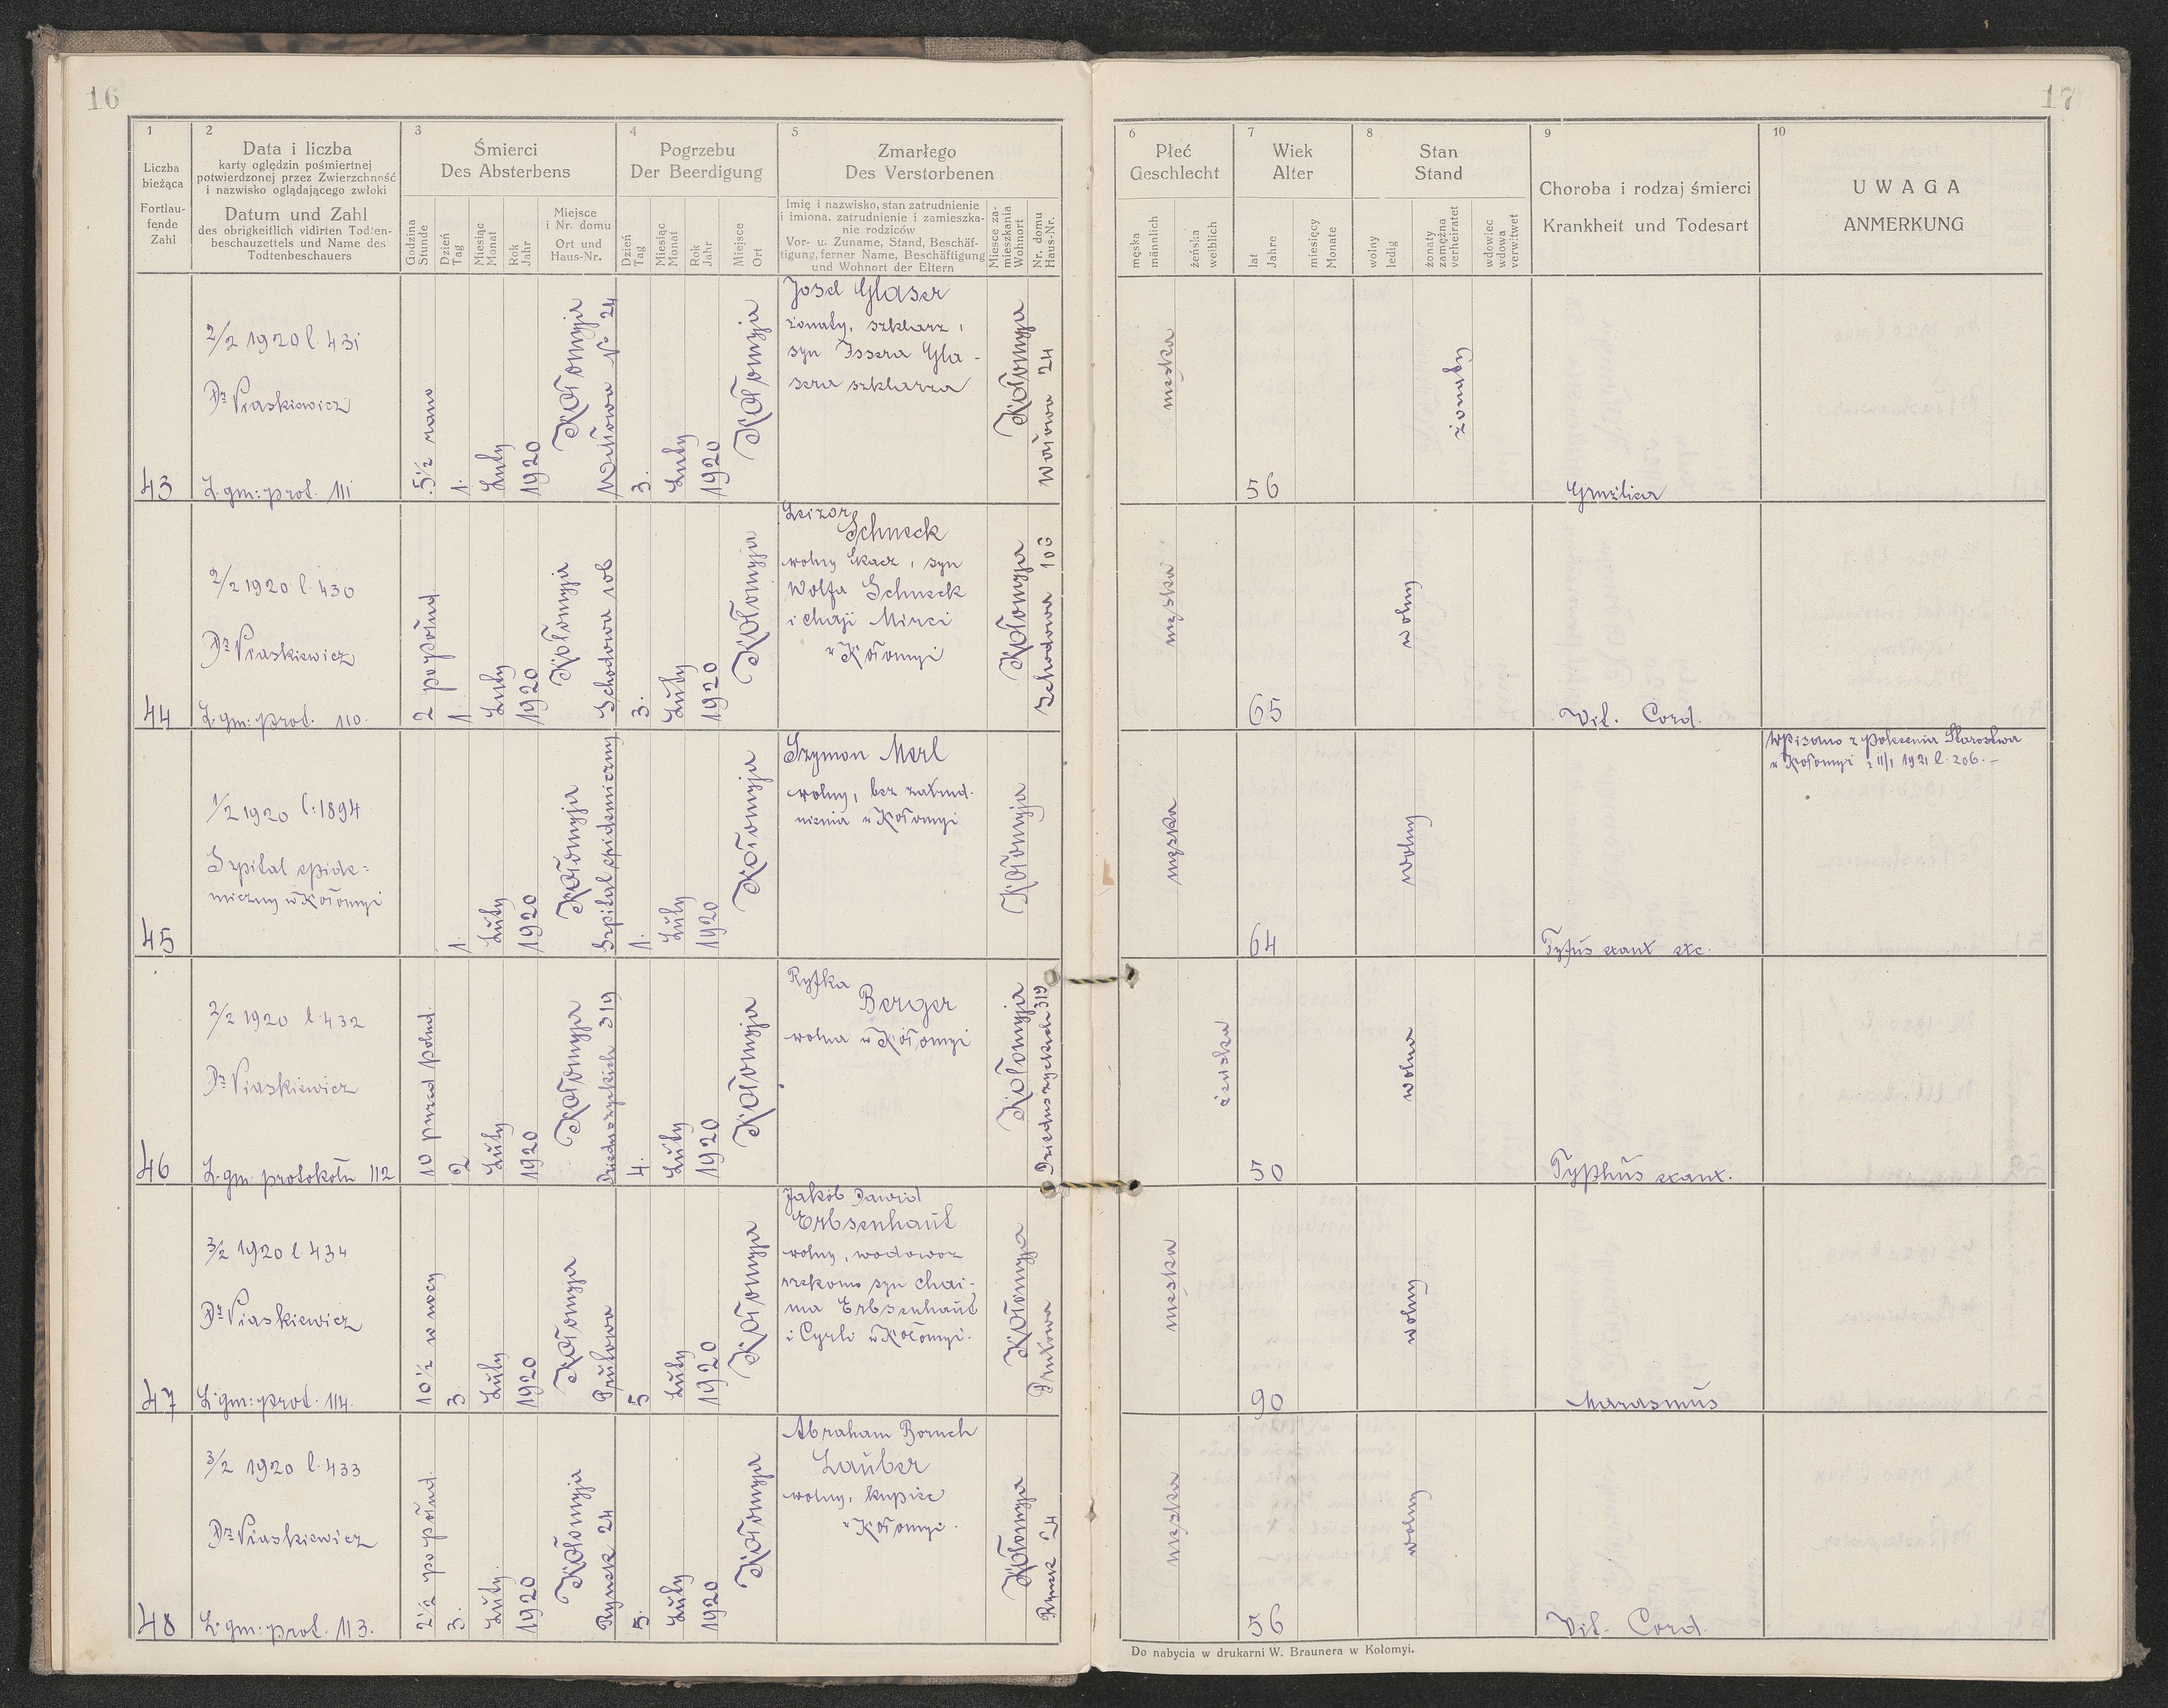 16
1
Liczba
bieżąca
Fortlau-
fende
Zahl
2
Data i liczba
karty oględzin pośmiertnej
potwierdzonej przez Zwierzchność
i nazwisko oglądającego zwłoki
Datum und Zahl
des obrigkeitlich vidirten Todten-
beschauzettels und Name des
Todtenbeschauers
3
Śmierci
Des Absterbens
Godzina
Stunde
Dzień
Tag
Miesiąc
Monat
Rok
Jahr
Miejsce
i Nr. domu
Ort und
Haus-Nr.
4
Pogrzebu
Der Beerdigung
Dzień
Tag
Miesiąc
Monat
Rok
Jahr
Miejsce
Ort
5
Zmarłego
Des Verstorbenen
Imię i nazwisko, stan zatrudnienie
i imiona, zatrudnienie i zamieszka-
nie rodziców
Vor- u. Zuname, Stand, Beschäf-
tigung, ferner Name, Beschäftigung
und Wohnort der Eltern
Miesce za-
mieszkania
Wohnort
Nr. domu
Haus-Nr.
43
2/2 1920 l 431
Dr Piaskiewicz
L. gm: prot. 111
5 1/2 rano
1.
Luty
1920
Kołomyja
Wałowa No 24
3.
Luty
1920
Kołomyja
Josel Glaser
żonaty, szklarz,
syn Issera Gla-
sera szklarza
Kołomyja
Wałowa 24
44
2/2 1920 l. 430
Dr Piaskiewicz
L. gm: prot. 110.
2 popołud.
1
Luty
1920
Kołomyja
Schodowa 106
3.
Luty
1920
Kołomyja
Leizor
Schneck
wolny tkacz, syn
Wolfa Schneck
i Chaji Mirci
w Kołomyi
Kołomyja
Schodowa 106
45
1/2 1920 l: 1894
Szpital epide=
miczny w Kołomyi
1.
Luty
1920
Kołomyja
Szpital epidemiczny
1.
Luty
1920
Kołomyja
Szymon Merl
wolny, bez zatrud-
nienia w Kołomyi
Kołomyja
46
2/2 1920 l. 432
Dr Piaskiewicz
L. gm. protokołu 112
10 przed połud.
2
Luty
1920
Kołomyja
Dzieduszyckich 319
4.
Luty
1920
Kołomyja
Ryfka
Berger
wolna w Kołomyi
Kołomyja
Dzieduszyckich 319
47
3/2 1920 l 434
Dr Piaskiewicz
L. gm: prot. 114.
10 1/2 w nocy
3
Luty
1920
Kołomyja
Prutowa
5
Luty
1920
Kołomyja
Jakób Dawid
Erbsenhaut
wolny, wodowoz
rzekomo syn Chai-
ma Erbsenhaut
i Cyrli w Kołomyi.
Kołomyja
Prutowa
48
3/2 1920 l. 433
Dr Piaskiewicz
L. gm: prot. 113.
2 1/2 popołud.
3.
Luty.
1920
Kołomyja
Rynek 24
5.
Luty
1920
Kołomyja
Abraham Boruch
Lauber
wolny, kupiec
w Kołomyi.
Kołomyja
Rynek 24
17
6
Płeć
Geschlecht
męska
männlich
żeńska
weiblich
7
Wiek
Alter
lat
Jahre
miesięcy
Monate
8
Stan
Stand
wolny
ledig
żonaty
zamężna
verheiratet
wdowiec
wdowa
verwitwet
9
Choroba i rodzaj śmierci
Krankheit und Todesart
10
UWAGA
ANMERKUNG
męska
56
żonaty
Gruźlica
męska
65
wolny
Vit. Cord.
męska
64
wolny
Tyfus exant etc.
Wpisano z polecenia Starostwa
w Kołomyi z 11/1 1921 l. 206.-
żeńska
50
wolna
Typhus exant.
męska
90
wolny
Marasmus
męska
56
wolny
Vit. Cord.
Do nabycia w drukarni W. Braunera w Kołomyi.